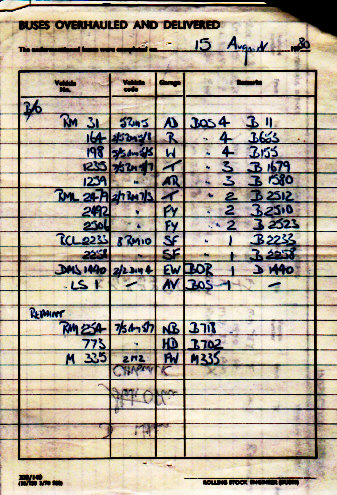 BUSES OVERHAULED AND DELIVERED
The undermentioned buses were completed on 15 August 1980
Vehicle No. Vehicle code Garage Remarks
B/O
RM 31 5Rm5 AD BOS 4 B 11
164 2/5Rm5/8 R " 4 B655
198 W " 4 B155
1235 T " 3 B 1679
1259 " AR " 3 B 1580
RML 2479 2/7Rm7/3 T " 2 B 2512
2492 " FY " 2 B 2510
2506 " FY " 2 B 2523
RCL 2233 8 RM10 SF " 1 B 2233
2258 " SF " 1 B 2258
DMS 1440 EW BOR 1 D 1440
LS 1 — AV BOS 1 —
REPAINT
RM 254 7/5Rm5/7 NB B718
773 " HD B702
M 335 2M2 PW M335
ROLLING STOCK ENGINEER (BUSES)